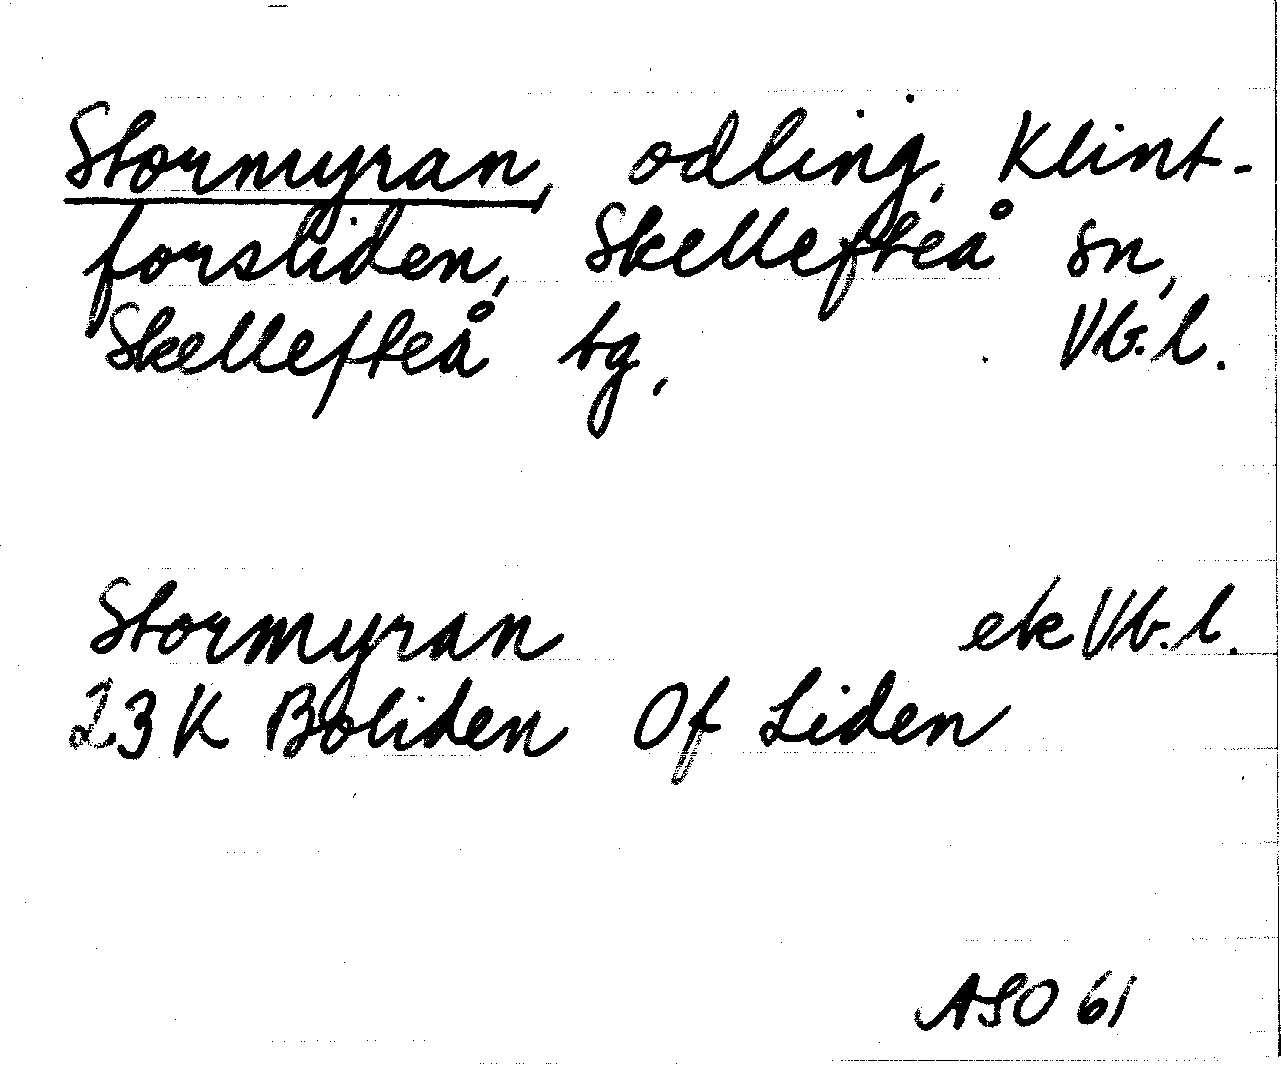 Stormyran, odling, Klint-
forsliden, Skellefteå sn,
Skellefteå tg, Vb.l.
Stormyran ek Vb.l.
23K Boliden Of Liden
ASO 61